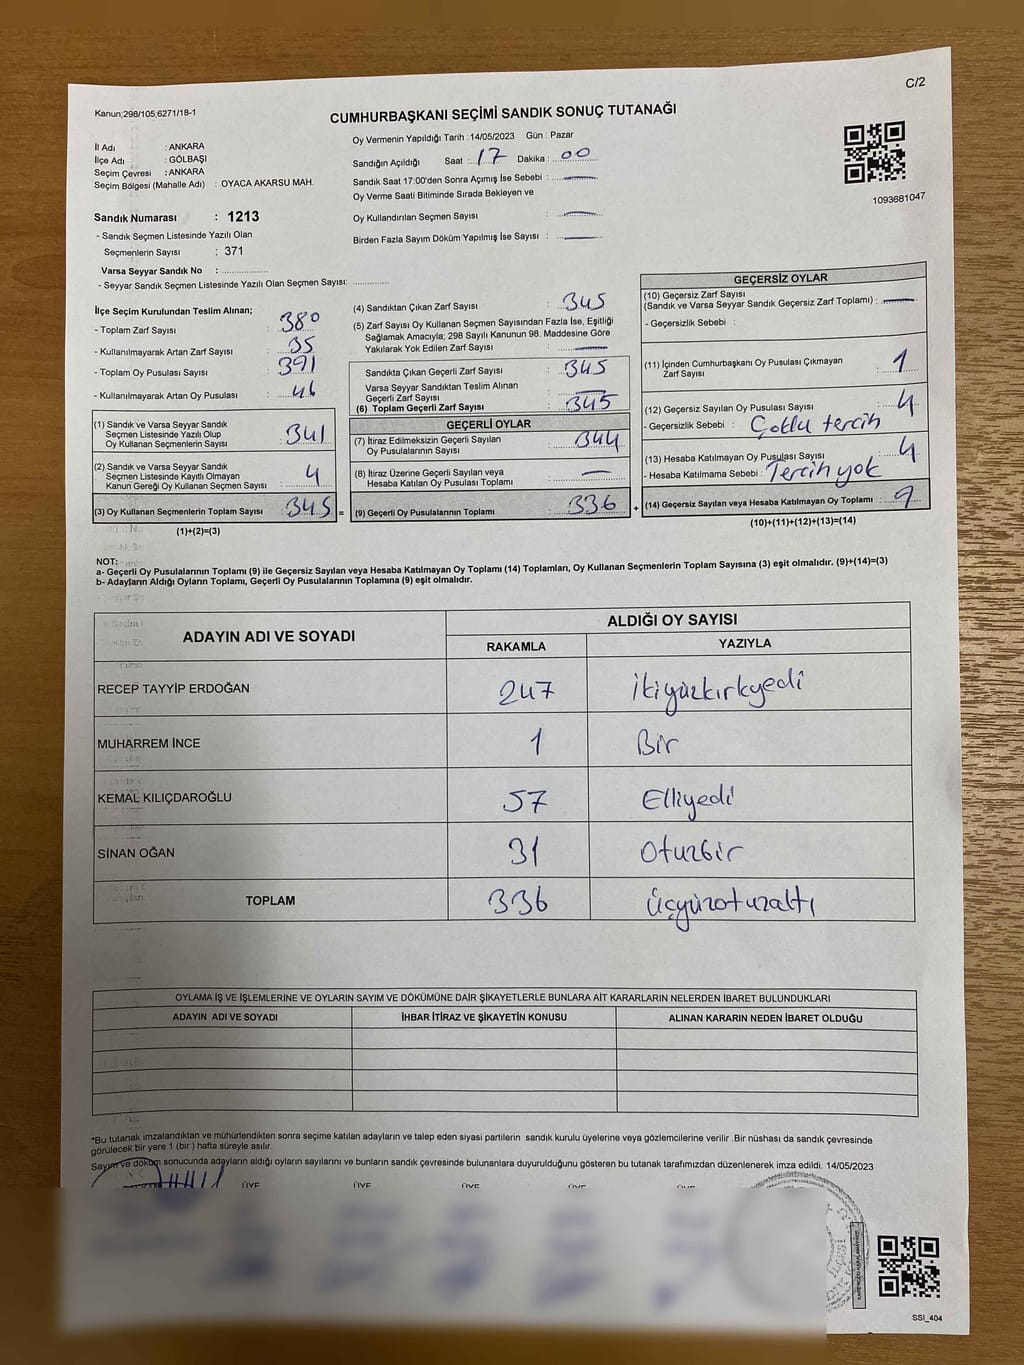 C/2
Kanun;298/105;6271/18-1
CUMHURBAŞKANI SEÇİMİ SANDIK SONUÇ TUTANAĞI
İl Adı : ANKARA
İlçe Adı : GÖLBAŞI
Seçim Çevresi : ANKARA
Seçim Bölgesi (Mahalle Adı) : OYACA AKARSU MAH.
Sandık Numarası : 1213
- Sandık Seçmen Listesinde Yazılı Olan
Seçmenlerin Sayısı : 371
Varsa Seyyar Sandık No :
- Seyyar Sandık Seçmen Listesinde Yazılı Olan Seçmen Sayısı:
Oy Vermenin Yapıldığı Tarih :14/05/2023 Gün : Pazar
Sandığın Açıldığı Saat : 17 Dakika : 00
Sandık Saat 17:00'den Sonra Açımış İse Sebebi : —
Oy Verme Saati Bitiminde Sırada Bekleyen ve
Oy Kullandırılan Seçmen Sayısı : —
Birden Fazla Sayım Döküm Yapılmış İse Sayısı : —
1093681047
İlçe Seçim Kurulundan Teslim Alınan;
- Toplam Zarf Sayısı : 380
- Kullanılmayarak Artan Zarf Sayısı : 35
- Toplam Oy Pusulası Sayısı : 391
- Kullanılmayarak Artan Oy Pusulası : 46
(1) Sandık ve Varsa Seyyar Sandık
Seçmen Listesinde Yazılı Olup
Oy Kullanan Seçmenlerin Sayısı : 341
(2) Sandık ve Varsa Seyyar Sandık
Seçmen Listesinde Kayıtlı Olmayan
Kanun Gereği Oy Kullanan Seçmen Sayısı : 4
(3) Oy Kullanan Seçmenlerin Toplam Sayısı : 345 =
(1)+(2)=(3)
(4) Sandıktan Çıkan Zarf Sayısı : 345
(5) Zarf Sayısı Oy Kullanan Seçmen Sayısından Fazla İse, Eşitliği
Sağlamak Amacıyla; 298 Sayılı Kanunun 98. Maddesine Göre
Yakılarak Yok Edilen Zarf Sayısı : —
Sandıkta Çıkan Geçerli Zarf Sayısı : 345
Varsa Seyyar Sandıktan Teslim Alınan
Geçerli Zarf Sayısı : —
(6) Toplam Geçerli Zarf Sayısı : 345
GEÇERLİ OYLAR
(7) İtiraz Edilmeksizin Geçerli Sayılan
Oy Pusulalarının Sayısı : 344
(8) İtiraz Üzerine Geçerli Sayılan veya
Hesaba Katılan Oy Pusulası Toplamı : —
(9) Geçerli Oy Pusulalarının Toplamı : 336 +
GEÇERSİZ OYLAR
(10) Geçersiz Zarf Sayısı
(Sandık ve Varsa Seyyar Sandık Geçersiz Zarf Toplamı) : —
- Geçersizlik Sebebi :
(11) İçinden Cumhurbaşkanı Oy Pusulası Çıkmayan
Zarf Sayısı : 1
(12) Geçersiz Sayılan Oy Pusulası Sayısı : 4
- Geçersizlik Sebebi : Çoklu tercih
(13) Hesaba Katılmayan Oy Pusulası Sayısı : 4
- Hesaba Katılmama Sebebi : Tercih yok
(14) Geçersiz Sayılan veya Hesaba Katılmayan Oy Toplamı : 9
(10)+(11)+(12)+(13)=(14)
NOT:
a- Geçerli Oy Pusulalarının Toplamı (9) ile Geçersiz Sayılan veya Hesaba Katılmayan Oy Toplamı (14) Toplamları, Oy Kullanan Seçmenlerin Toplam Sayısına (3) eşit olmalıdır. (9)+(14)=(3)
b- Adayların Aldığı Oyların Toplamı, Geçerli Oy Pusulalarının Toplamına (9) eşit olmalıdır.
ADAYIN ADI VE SOYADI
ALDIĞI OY SAYISI
RAKAMLA YAZIYLA
RECEP TAYYİP ERDOĞAN 247 ikiyüzkırkyedi
MUHARREM İNCE 1 Bir
KEMAL KILIÇDAROĞLU 57 Elliyedi
SİNAN OĞAN 31 Otuzbir
TOPLAM 336 üçyüzotuzaltı
OYLAMA İŞ VE İŞLEMLERİNE VE OYLARIN SAYIM VE DÖKÜMÜNE DAİR ŞİKAYETLERLE BUNLARA AİT KARARLARIN NELERDEN İBARET BULUNDUKLARI
ADAYIN ADI VE SOYADI İHBAR İTİRAZ VE ŞİKAYETİN KONUSU ALINAN KARARIN NEDEN İBARET OLDUĞU
*Bu tutanak imzalandıktan ve mühürlendikten sonra seçime katılan adayların ve talep eden siyasi partilerin sandık kurulu üyelerine veya gözlemcilerine verilir .Bir nüshası da sandık çevresinde
görülecek bir yere 1 (bir ) hafta süreyle asılır.
Sayım ve döküm sonucunda adayların aldığı oyların sayılarını ve bunların sandık çevresinde bulunanlara duyurulduğunu gösteren bu tutanak tarafımızdan düzenlenerek imza edildi. 14/05/2023
ÜYE ÜYE ÜYE ÜYE ÜYE
SSI_404